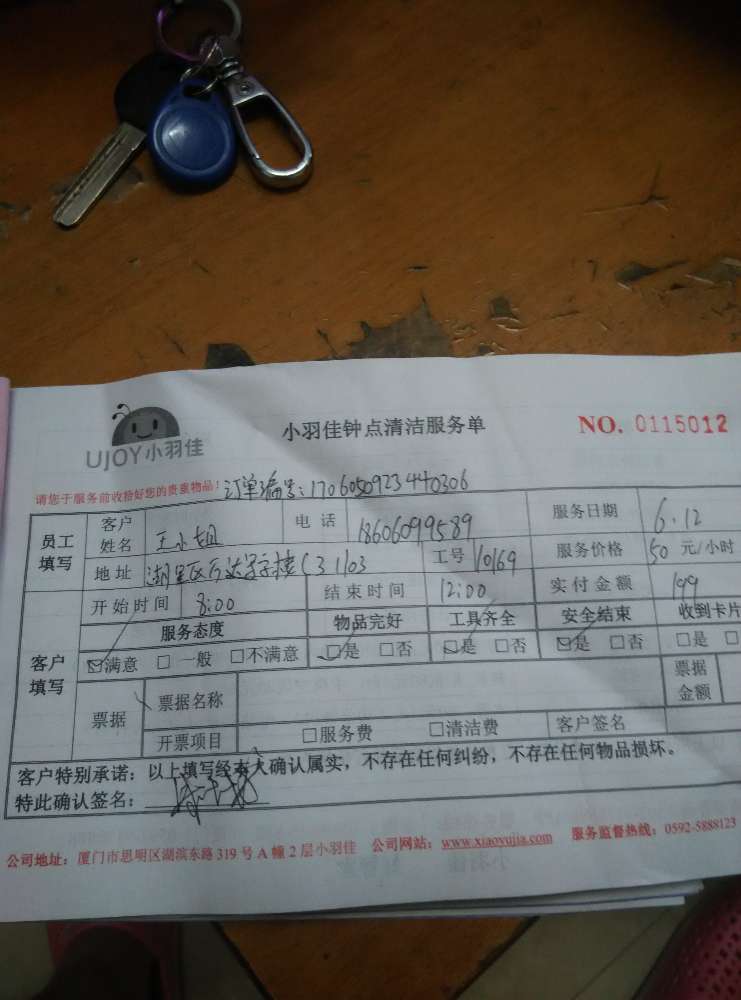 UJOY小羽佳
小羽佳钟点清洁服务单
NO. 0115012
请您于服务前收拾好您的贵重物品!
订单编号:1706050923440306
员工填写 客户姓名 王小姐 电话 18606099589 服务日期 6.12
地址 湖里区万达写字楼C3 1103 工号 10169 服务价格 50 元/小时
客户填写 开始时间 8:00 结束时间 12:00 实付金额 199
服务态度 物品完好 工具齐全 安全结束 收到卡片
☑满意 □一般 □不满意 ☑是 □否 ☑是 □否 ☑是 □否 □是 □
票据 票据名称 票据金额
开票项目 □服务费 □清洁费 客户签名
客户特别承诺:以上填写经本人确认属实,不存在任何纠纷,不存在任何物品损坏。
特此确认签名:
公司地址:厦门市思明区湖滨东路319号A幢2层小羽佳 公司网站:www.xiaoyujia.com 服务监督热线:0592-5888123